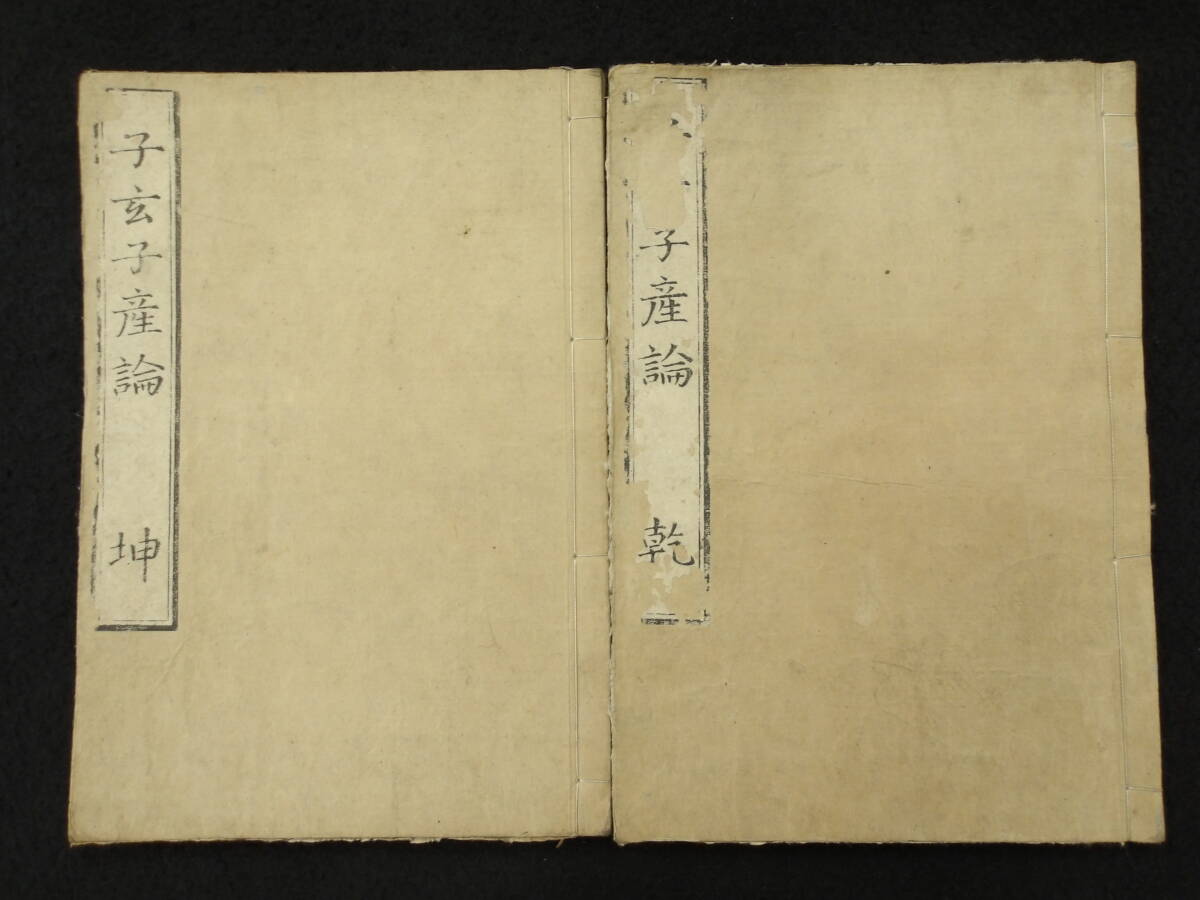 子産論 乾
子玄子産論 坤